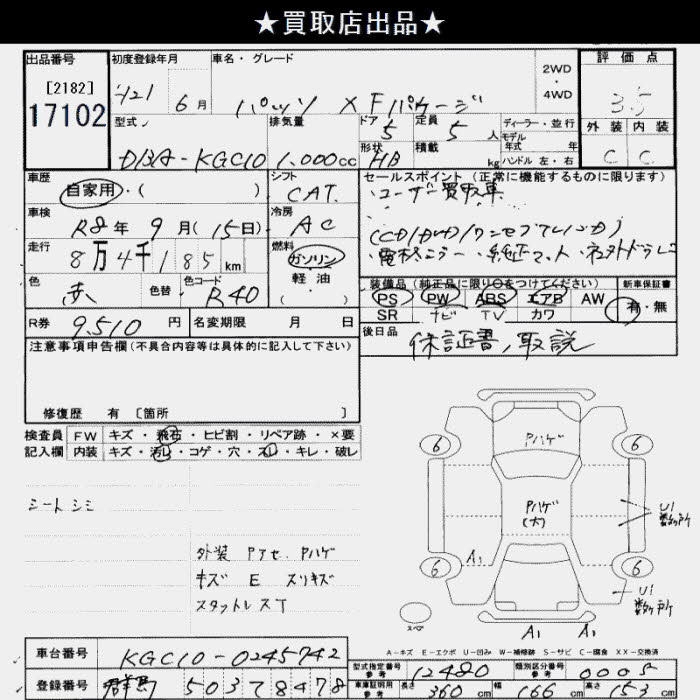 ★買取店出品★
出品番号
[2182]
17102
初度登録年月
H21 6月
車名・グレード
パッソ X Fパッケージ
2WD
・
4WD
評価点
3.5
外装 内装
C C
型式
DBA-KGC10
排気量
1,000cc
ドア
5
形状
HB
定員
5人
積載
kg
ディーラー・並行
モデル
年式 年
ハンドル 左・右
車歴
自家用・( )
シフト
CAT.
車検
R8年 9月(15日)
冷房
AC
走行
8万4千185km
燃料
ガソリン
軽油
( )
色
赤
色替
色コード
R40
R券
9,510円
名変期限 月 日
セールスポイント(正常に機能するものに限ります)
・ユーザー買取車
(CD/DVD/ワンセグTV/
・電格ミラー ・純正マット ・社外ドラレコ
装備品(純正品に限り○をつけてください)
PS PW ABS エアB AW
SR ナビ TV カワ
新車保証書
有・無
後日品
保証書,取説
注意事項申告欄(不具合内容等は具体的に記入して下さい)
修復歴 有 [箇所 ]
検査員
記入欄
FW キズ・飛石・ヒビ割・リペア跡・×要
内装 キズ・汚レ・コゲ・穴・スレ・キレ・破レ
シートシミ
外装 Pアセ Pハゲ
キズ E スリキズ
スタットレスT
Pハゲ
6 6
Pハゲ
(大)
U1
数カ所
A1
6 6
U1
数カ所
スペア
A1 A1
A-キズ E-エクボ U-凹み W-補修跡 S-サビ C-腐食 XX-交換済
車台番号
KGC10-0245742
登録番号
群馬 503 78478
型式指定番号
参考
12480
類別区分番号
参考
車庫証明用
参考
長さ 360cm
幅 166cm
高さ 153cm